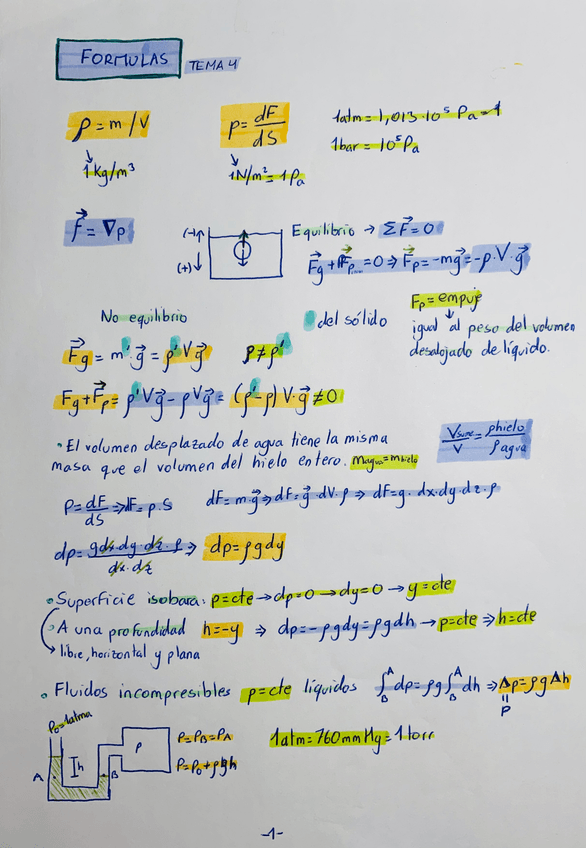 FORMULAS TEMA 4
ρ = m/V
p = dF/dS
1atm = 1,013·10⁵ Pa = 1
1 kg/m³
1N/m² = 1 Pa
1bar = 10⁵ Pa
f⃗ = ∇p
(-)↑
(+)↓
Equilibrio → ΣF⃗ = 0
F⃗g + F⃗p = 0 ⇒ F⃗p = -mg⃗ = -ρ·V·g⃗
Fp = empuje
igual al peso del volumen
desalojado de líquido.
No equilibrio
' del sólido
F⃗g = m'·g⃗ = ρ'Vg⃗
ρ ≠ ρ'
F⃗g + F⃗p = ρ'Vg⃗ - ρVg⃗ = (ρ'-ρ)V·g⃗ ≠ 0
· El volumen desplazado de agua tiene la misma
masa que el volumen del hielo entero. magua = mhielo
Vsume/V = ρhielo/ρagua
p = dF/dS ⇒ dF = p·S
dF = m·g⃗ ⇒ dF = g⃗·dV·ρ ⇒ dF = g·dx·dy·dz·ρ
dp = gdx·dy·dz·ρ/dx·dz ⇒ dp = ρgdy
· Superficie isobara: p = cte → dp = 0 → dy = 0 → y = cte
· A una profundidad h = -y ⇒ dp = -ρgdy = ρgdh → p = cte ⇒ h = cte
libre, horizontal y plana
· Fluidos incompresibles ρ = cte líquidos ∫ᴬ_B dp = ρg∫ᴬ_B dh ⇒ Δp = ρgΔh
p
P₀ = 1atma
A
h
B
P
P = P_B = P_A
P = P₀ + ρgh
1atm = 760mmHg = 1torr
-1-